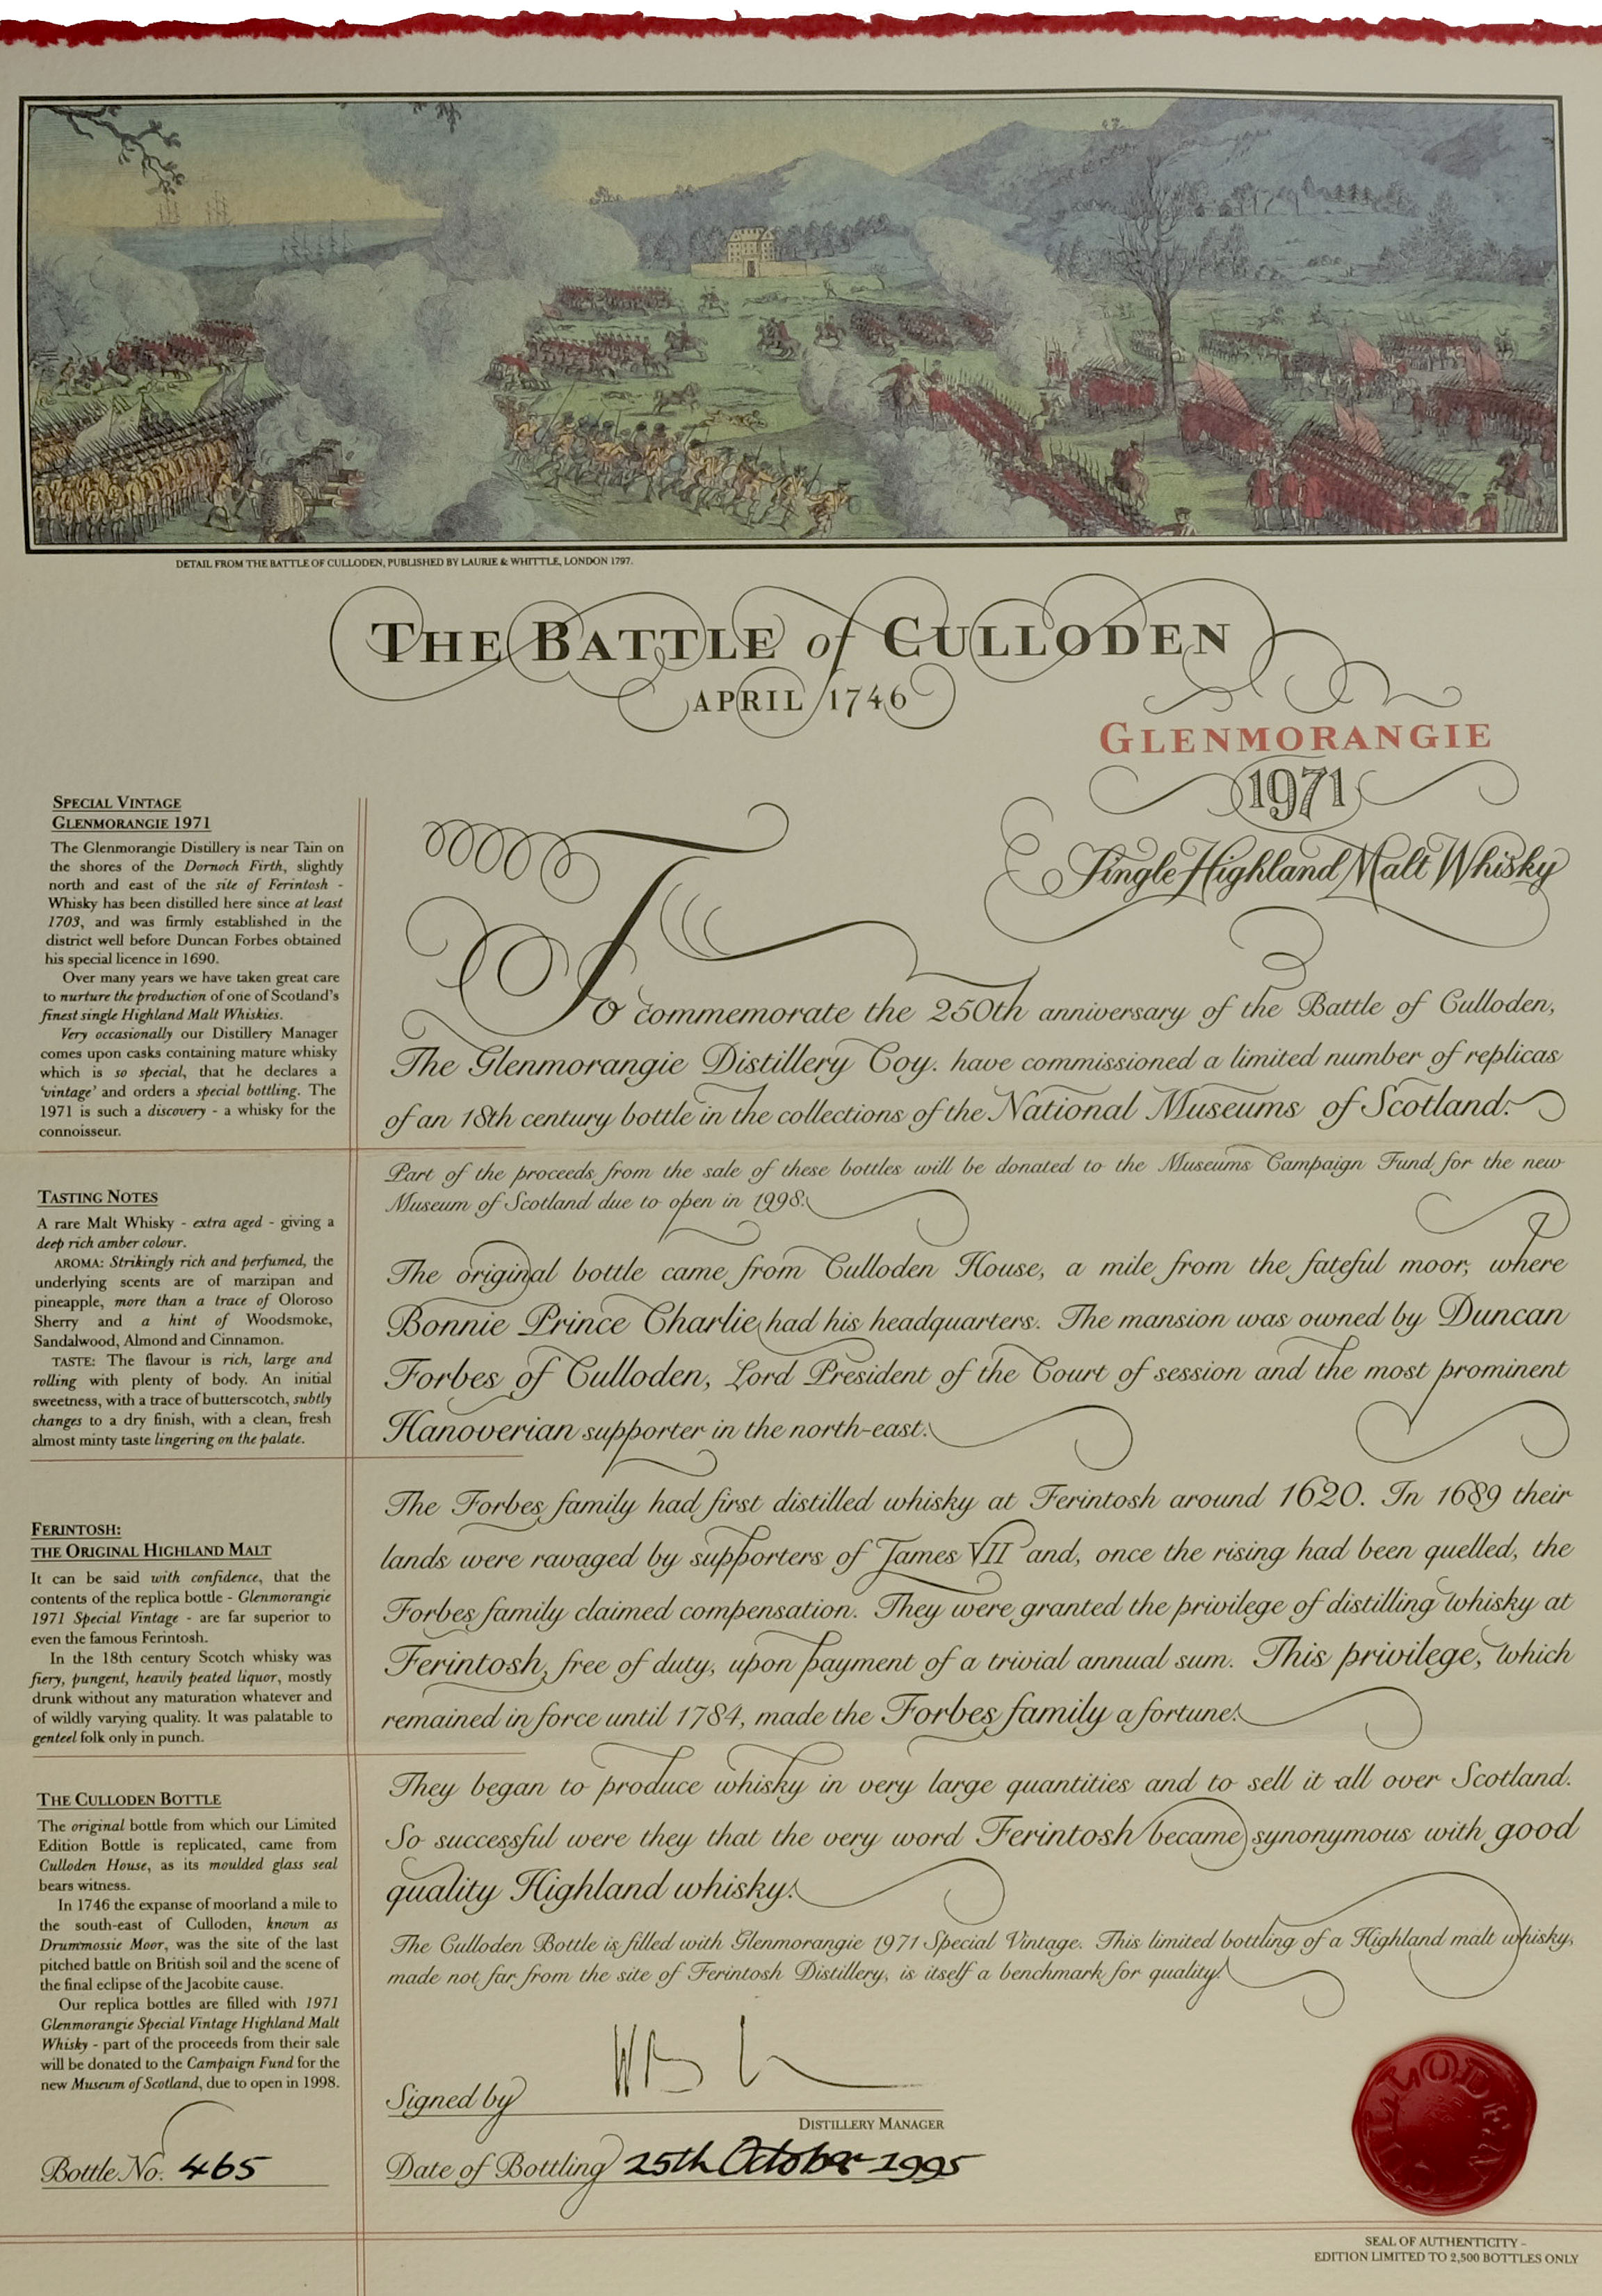 DETAIL FROM THE BATTLE OF CULLODEN, PUBLISHED BY LAURIE & WHITTLE, LONDON 1797.
THE BATTLE of CULLODEN
APRIL 1746
GLENMORANGIE
1971
Single Highland Malt Whisky
SPECIAL VINTAGE
GLENMORANGIE 1971
The Glenmorangie Distillery is near Tain on
the shores of the Dornoch Firth, slightly
north and east of the site of Ferintosh -
Whisky has been distilled here since at least
1703, and was firmly established in the
district well before Duncan Forbes obtained
his special licence in 1690.
Over many years we have taken great care
to nurture the production of one of Scotland's
finest single Highland Malt Whiskies.
Very occasionally our Distillery Manager
comes upon casks containing mature whisky
which is so special, that he declares a
'vintage' and orders a special bottling. The
1971 is such a discovery - a whisky for the
connoisseur.
TASTING NOTES
A rare Malt Whisky - extra aged - giving a
deep rich amber colour.
AROMA: Strikingly rich and perfumed, the
underlying scents are of marzipan and
pineapple, more than a trace of Oloroso
Sherry and a hint of Woodsmoke,
Sandalwood, Almond and Cinnamon.
TASTE: The flavour is rich, large and
rolling with plenty of body. An initial
sweetness, with a trace of butterscotch, subtly
changes to a dry finish, with a clean, fresh
almost minty taste lingering on the palate.
FERINTOSH:
THE ORIGINAL HIGHLAND MALT
It can be said with confidence, that the
contents of the replica bottle - Glenmorangie
1971 Special Vintage - are far superior to
even the famous Ferintosh.
In the 18th century Scotch whisky was
fiery, pungent, heavily peated liquor, mostly
drunk without any maturation whatever and
of wildly varying quality. It was palatable to
genteel folk only in punch.
THE CULLODEN BOTTLE
The original bottle from which our Limited
Edition Bottle is replicated, came from
Culloden House, as its moulded glass seal
bears witness.
In 1746 the expanse of moorland a mile to
the south-east of Culloden, known as
Drummossie Moor, was the site of the last
pitched battle on British soil and the scene of
the final eclipse of the Jacobite cause.
Our replica bottles are filled with 1971
Glenmorangie Special Vintage Highland Malt
Whisky - part of the proceeds from their sale
will be donated to the Campaign Fund for the
new Museum of Scotland, due to open in 1998.
Bottle No. 465
To commemorate the 250th anniversary of the Battle of Culloden,
The Glenmorangie Distillery Coy. have commissioned a limited number of replicas
of an 18th century bottle in the collections of the National Museums of Scotland.
Part of the proceeds from the sale of these bottles will be donated to the Museums Campaign Fund for the new
Museum of Scotland due to open in 1998.
The original bottle came from Culloden House, a mile from the fateful moor, where
Bonnie Prince Charlie had his headquarters. The mansion was owned by Duncan
Forbes of Culloden, Lord President of the Court of session and the most prominent
Hanoverian supporter in the north-east.
The Forbes family had first distilled whisky at Ferintosh around 1620. In 1689 their
lands were ravaged by supporters of James VII and, once the rising had been quelled, the
Forbes family claimed compensation. They were granted the privilege of distilling whisky at
Ferintosh, free of duty, upon payment of a trivial annual sum. This privilege, which
remained in force until 1784, made the Forbes family a fortune.
They began to produce whisky in very large quantities and to sell it all over Scotland.
So successful were they that the very word Ferintosh became synonymous with good
quality Highland whisky.
The Culloden Bottle is filled with Glenmorangie 1971 Special Vintage. This limited bottling of a Highland malt whisky,
made not far from the site of Ferintosh Distillery, is itself a benchmark for quality.
Signed by
DISTILLERY MANAGER
Date of Bottling 25th October 1995
CULLODEN
SEAL OF AUTHENTICITY -
EDITION LIMITED TO 2,500 BOTTLES ONLY